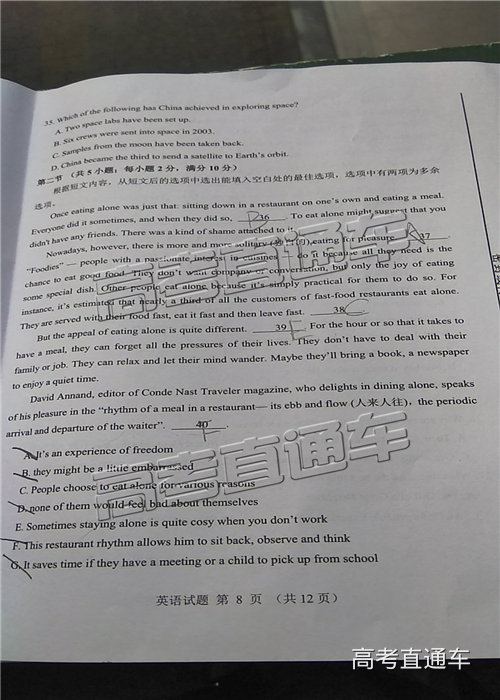 35. Which of the following has China achieved in exploring space?
A. Two space labs have been set up.
B. Six crews were sent into space in 2003.
C. Samples from the moon have been taken back.
D. China became the third to send a satellite to Earth's orbit.
第二节 (共5小题; 每小题2分, 满分10分)
根据短文内容, 从短文后的选项中选出能填入空白处的最佳选项, 选项中有两项为多余
选项。
Once eating alone was just that: sitting down in a restaurant on one's own and eating a meal.
Everyone did it sometimes, and when they did so, 36 To eat alone might suggest that you
didn't have any friends. There was a kind of shame attached to it.
Nowadays, however, there is more and more solitary eating for pleasure. 37
"Foodies" — people with a passionate interest in cuisines — do it because all they need is the
chance to eat good food. They don't want company or conversation, but only the joy of eating
some special dish. Other people eat alone because it's simply practical for them to do so. For
instance, it's estimated that nearly a third of all the customers of fast-food restaurants eat alone.
They are served with their food fast, eat it fast and then leave fast. 38 C
But the appeal of eating alone is quite different. 39 E For the hour or so that it takes to
have a meal, they can forget all the pressures of their lives. They don't have to deal with their
family or job. They can relax and let their mind wander. Maybe they'll bring a book, a newspaper
to enjoy a quiet time.
David Annand, editor of Conde Nast Traveler magazine, who delights in dining alone, speaks
of his pleasure in the "rhythm of a meal in a restaurant— its ebb and flow (人来人往), the periodic
arrival and departure of the waiter". 40
A. It's an experience of freedom
B. they might be a little embarrassed
C. People choose to eat alone for various reasons
D. none of them would feel bad about themselves
E. Sometimes staying alone is quite cosy when you don't work
F. This restaurant rhythm allows him to sit back, observe and think
G. It saves time if they have a meeting or a child to pick up from school
英语试题 第 8 页 (共12页)
高考直通车
高考直通车
高考直通车